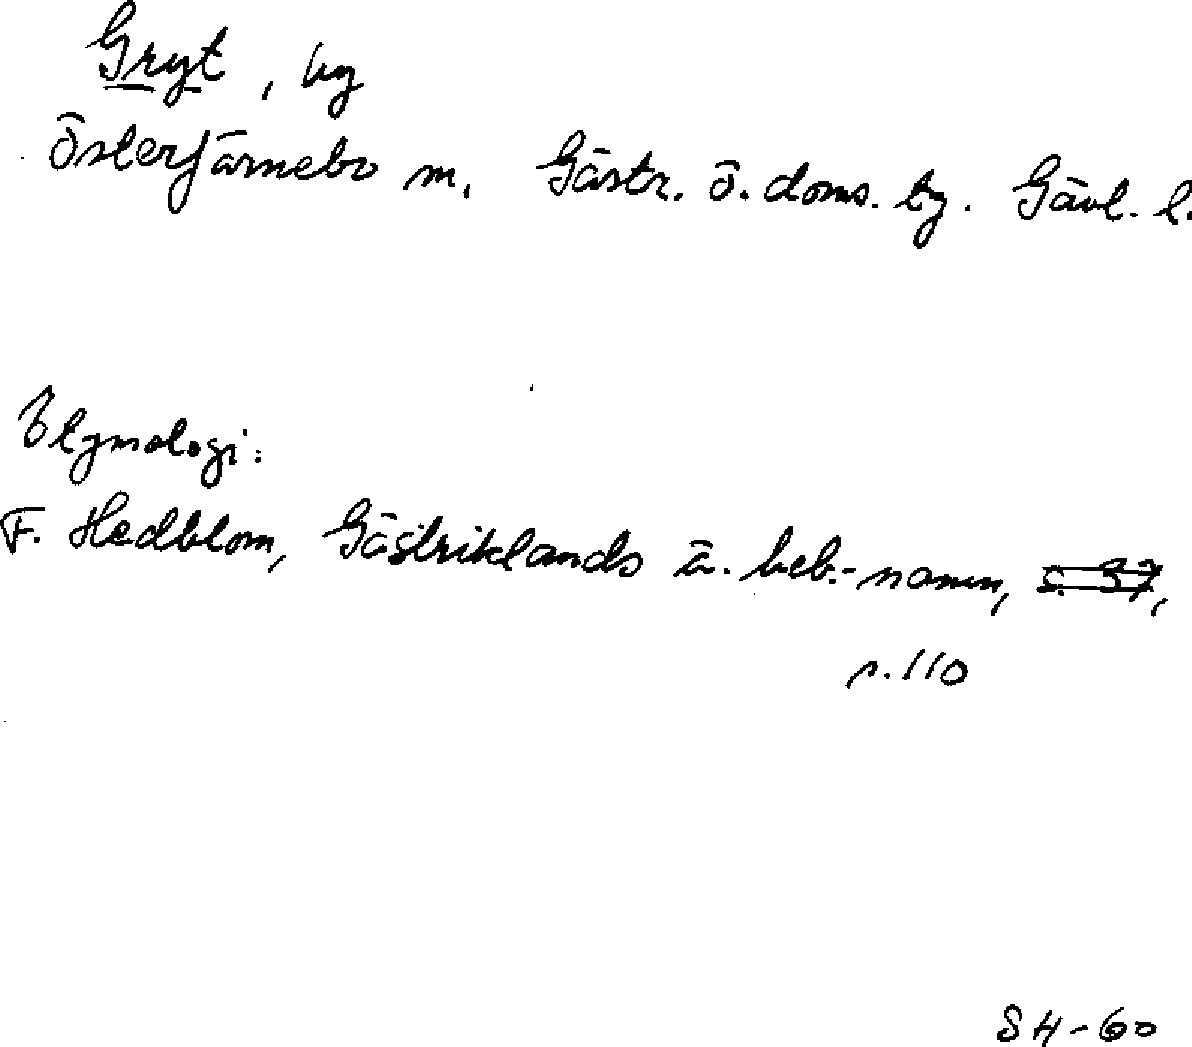 Gryt, by
Österfärnebo sn. Gästr. ö. doms. bg. Gävl. l.
Etymologi:
F. Hedblom, Gästriklands ä. beb.-namn, s. 37,
s. 110
SH-60